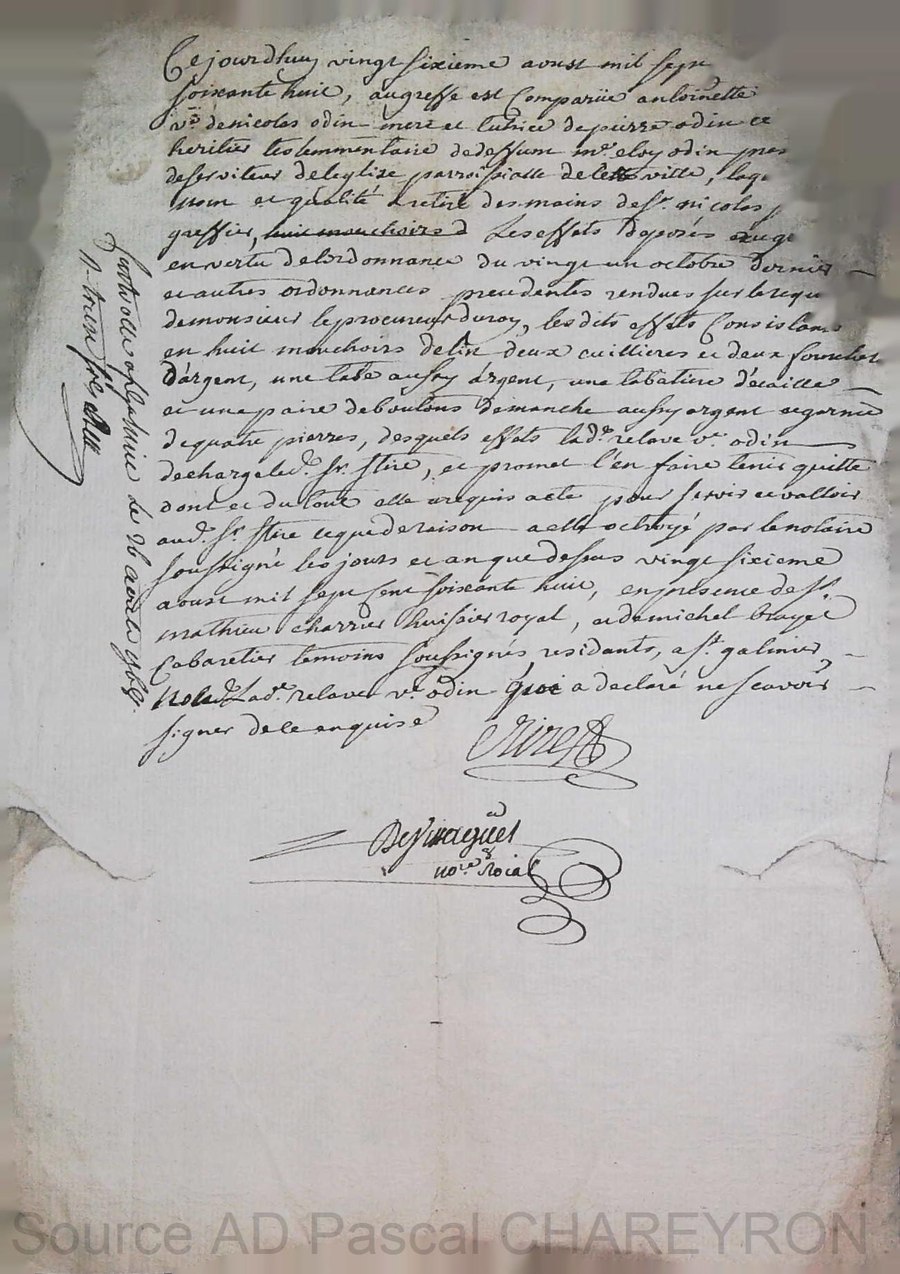 Ce jourdhuy vingt sixieme aoust mil sept
soixante huit, au greffe est Comparüe antoinette
vᵉ de nicolas odin mere et tutrice de pierre odin
heritier testemmentaire de deffunt mʳ. eloy odin
deserviteur de leglise parroissialle de ville,
nom et qualité a retiré des mains de sʳ. nicolas
greffier, huit mouchoirs d Les effets deposés au
en vertu de lordonnance du vingt un octobre dernier
et autres ordonnances precedentes rendues sur le requ
de monsieur le procureur du roy, les dits effets Consistant
en huit mouchoirs de lin deux cuillieres et deux fourchet
D'argent, une tasse aussy d'argent, une tabatiere d'écaille
et une paire de boutons de manche aussy argent et garnie
de quatre pierres, desquels effets lad. vᵉ odin
decharge led. sr. , et promet l'en faire tenir quitte
dont et du tout elle a requis acte pour servir et valloir
aud. sʳ. ce que de raison a elle octroyé par le notaire
soussigné les jours et an que dessus vingt sixieme
aoust mil sept cent soixante huit, en présence de sʳ.
mathieu charrier huissier royal, et de michel
Cabaretier temoins soussignés residants, a sᵗ. galmier
lad. vᵉ. odin qui a declaré ne scavoir
signer de ce enquise
noʳᵉ Roial
Source AD Pascal CHAREYRON